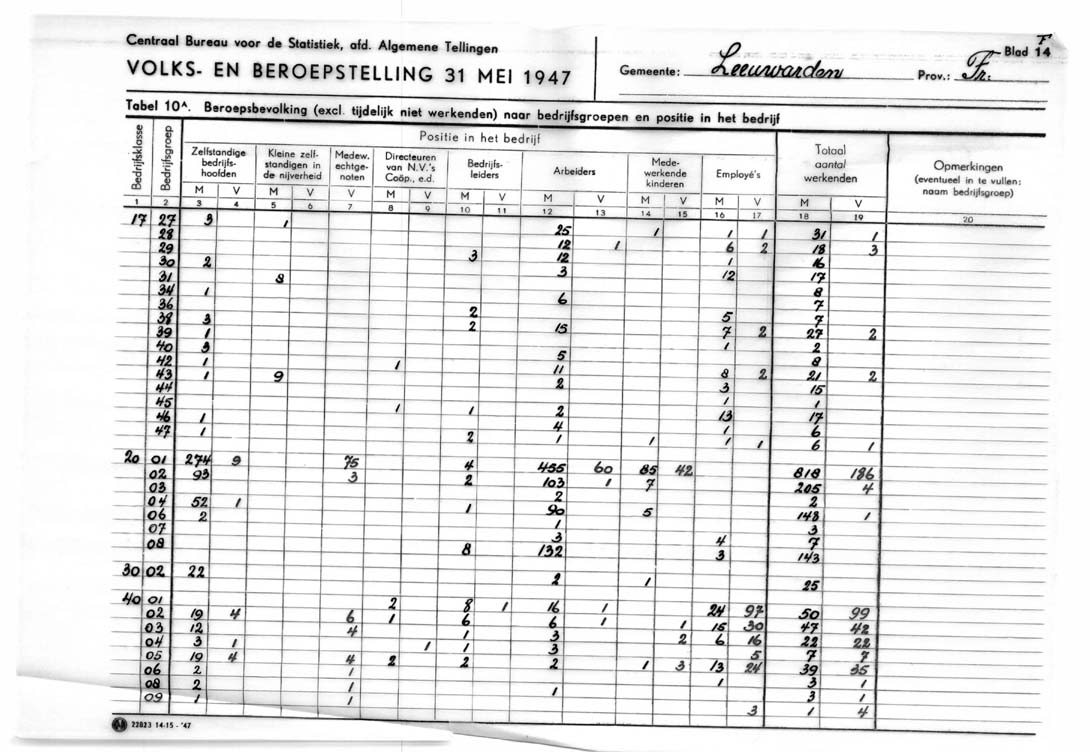 Centraal Bureau voor de Statistiek, afd. Algemene Tellingen
VOLKS- EN BEROEPSTELLING 31 MEI 1947
Gemeente: Leeuwarden Prov.: Fr. Blad 14 F
Tabel 10A. Beroepsbevolking (excl. tijdelijk niet werkenden) naar bedrijfsgroepen en positie in het bedrijf
Bedrijfsklasse Bedrijfsgroep Positie in het bedrijf Totaal aantal werkenden Opmerkingen (eventueel in te vullen: naam bedrijfsgroep)
Zelfstandige bedrijfs-hoofden Kleine zelf-standigen in de nijverheid Medew. echtge-noten Directeuren van N.V.'s Coöp., e.d. Bedrijfs-leiders Arbeiders Mede-werkende kinderen Employé's
M V M V V M V M V M V M V M V M V
1 2 3 4 5 6 7 8 9 10 11 12 13 14 15 16 17 18 19 20
17 27 3 1 25 1 1 1 31 1
28 12 1 6 2 18 3
29 3 12 1 16
30 2 3 12 17
31 8 8
34 1 6 7
36 2 5 7
38 3 2 15 7 2 27 2
39 1 1 2
40 3 5 8
42 1 1 11 8 2 21 2
43 1 9 2 3 15
44 1 1
45 1 1 2 13 17
46 1 4 1 6
47 1 2 1 1 1 1 6 1
20 01 274 9 75 4 455 60 85 42 818 186
02 93 3 2 103 1 7 205 4
03 2 2
04 52 1 1 90 5 148 1
06 2 1 3
07 3 4 7
08 8 132 3 143
30 02 22 2 1 25
40 01 2 8 1 16 1 24 97 50 99
02 19 4 6 1 6 6 1 1 15 30 47 42
03 12 4 1 3 2 6 16 22 22
04 3 1 1 1 3 5 7 7
05 19 4 4 2 2 2 1 3 13 24 39 35
06 2 1 1 3 1
08 2 1 1 3 1
09 1 1 3 1 4
22823 14-15 - '47